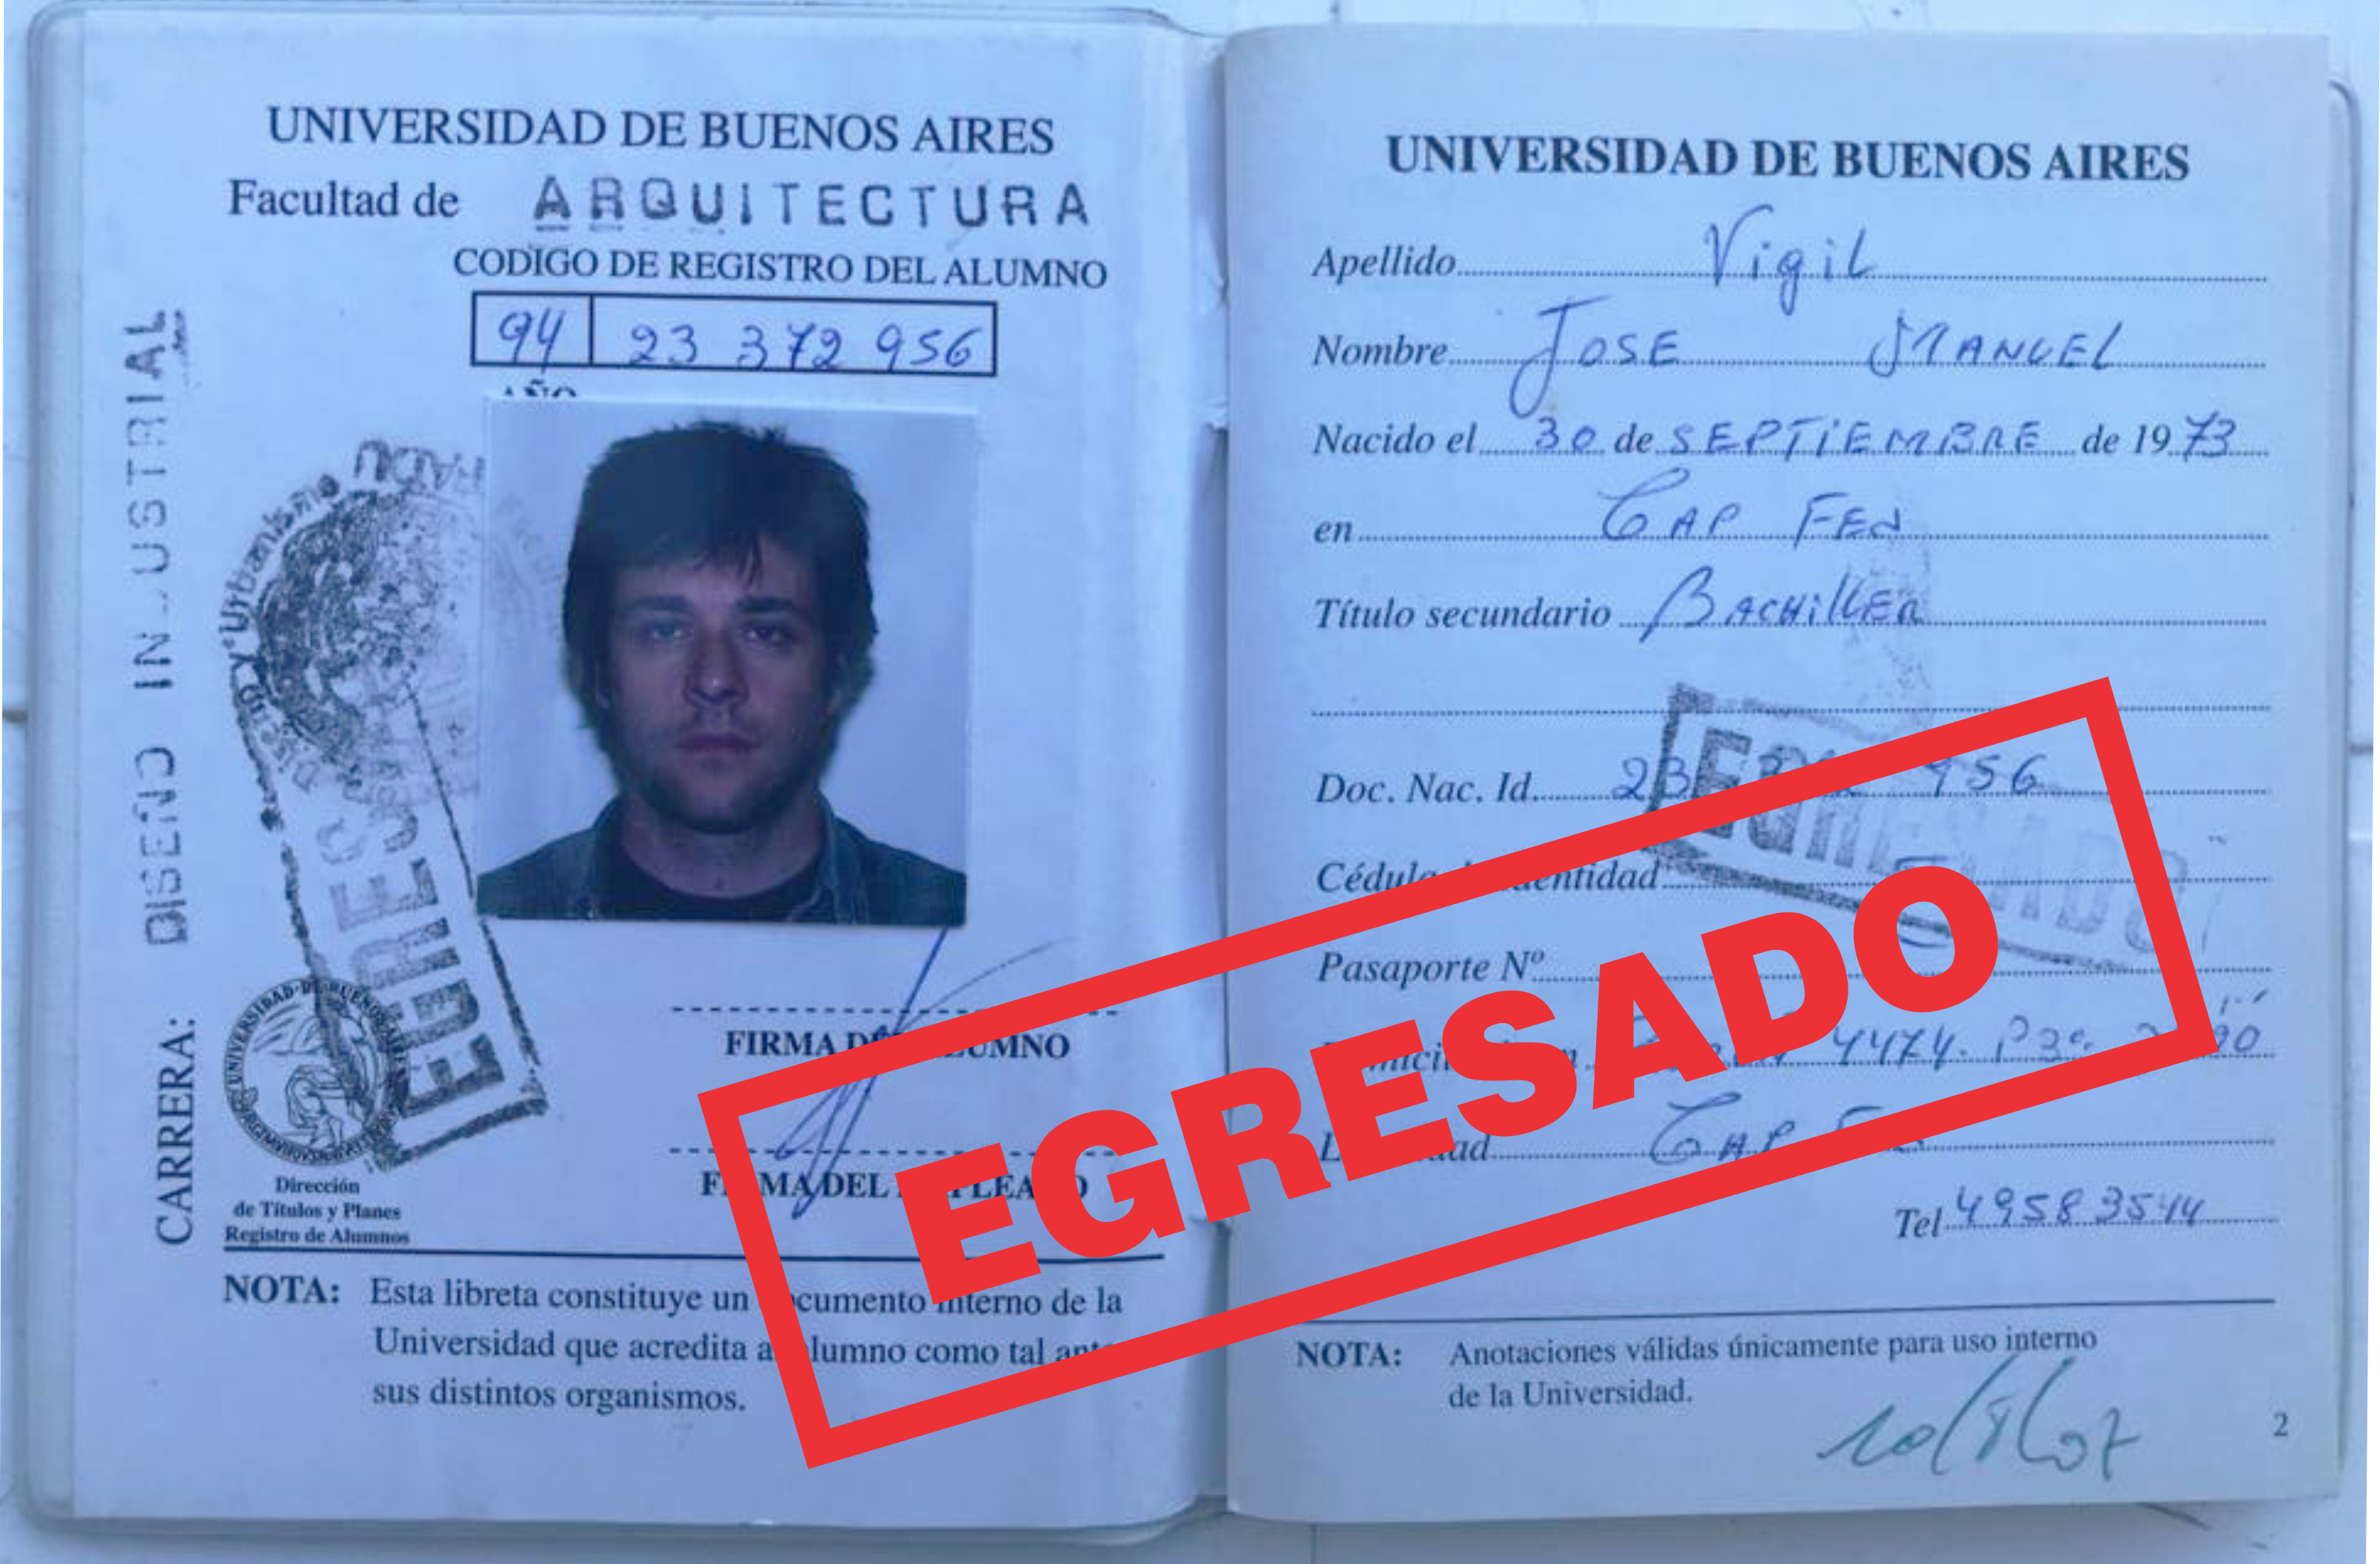 UNIVERSIDAD DE BUENOS AIRES
Facultad de ARQUITECTURA
CODIGO DE REGISTRO DEL ALUMNO
94 23 372 956
AÑO
CARRERA: DISEÑO INDUSTRIAL
Urbanismo
EGRES
UNIVERSIDAD DE BUENOS AIRES
Dirección
de Títulos y Planes
Registro de Alumnos
FIRMA DEL ALUMNO
FIRMA DEL EMPLEADO
NOTA: Esta libreta constituye un documento interno de la
Universidad que acredita al alumno como tal ante
sus distintos organismos.
UNIVERSIDAD DE BUENOS AIRES
Apellido Vigil
Nombre JOSE MANUEL
Nacido el 30 de SEPTIEMBRE de 1973
en CAP FED
Título secundario BACHILLER
Doc. Nac. Id. 23 956
EGRESADO
Cédula de Identidad
Pasaporte Nº
4474
CAP
Tel 49583544
EGRESADO
NOTA: Anotaciones válidas únicamente para uso interno
de la Universidad.
10/8/07
2